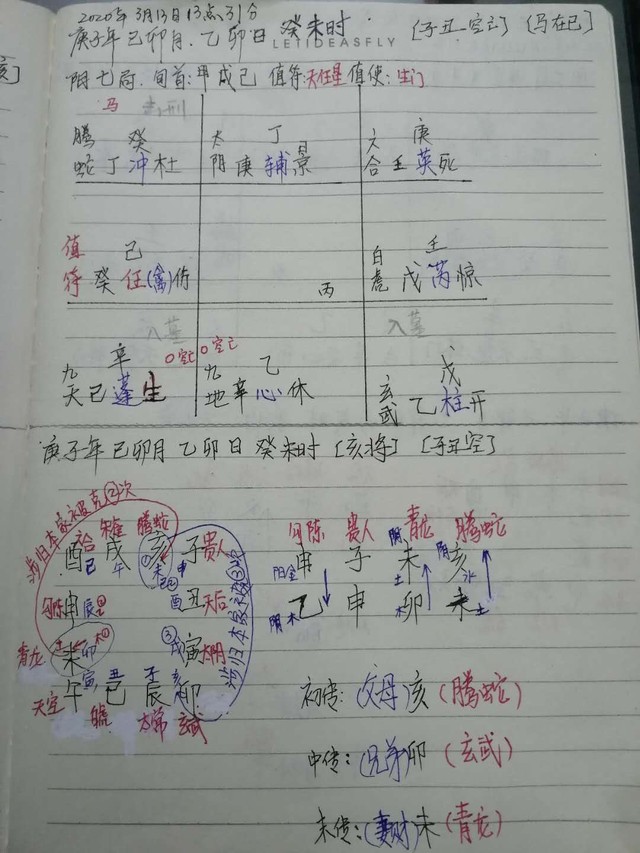 2020年3月13日13点31分
庚子年己卯月.乙卯日 癸未时 [子丑空亡] (马在巳)
LETIDEASFLY
阴七局. 旬首:甲戌己 值符:天任星 值使:生门
马 击刑
腾 癸 太 丁 六 庚
蛇 丁 冲 杜 阴 庚 辅 景 合 壬 英 死
值 己 白 壬
符 癸 任(禽)伤 丙 虎 戊 芮 惊
入墓 入墓
九 辛 0空亡 0空亡 九 乙 戊
天 己 蓬 生 地 辛 心 休 玄武 乙 柱 开
庚子年己卯月 乙卯日 癸未时 [亥将] [子丑空]
涉归本家被克②次
六合 朱雀 腾蛇
酉 戌 亥 子 贵人
巳 午 未 申
勾陈 申 辰 酉 丑 天后
青龙 未 卯 戌 寅 太阴
天空 午 寅 巳 丑 辰 子 卯 亥
白虎 太常 玄武
涉归本家被克③次
勾陈 贵人 青龙 腾蛇
阳金 申 子 阴 未 土 阴 亥 水
阴木 乙 申 卯 未 土
初传: (父母)亥 (腾蛇)
中传: (兄弟)卯 (玄武)
末传: (妻财)未 (青龙)